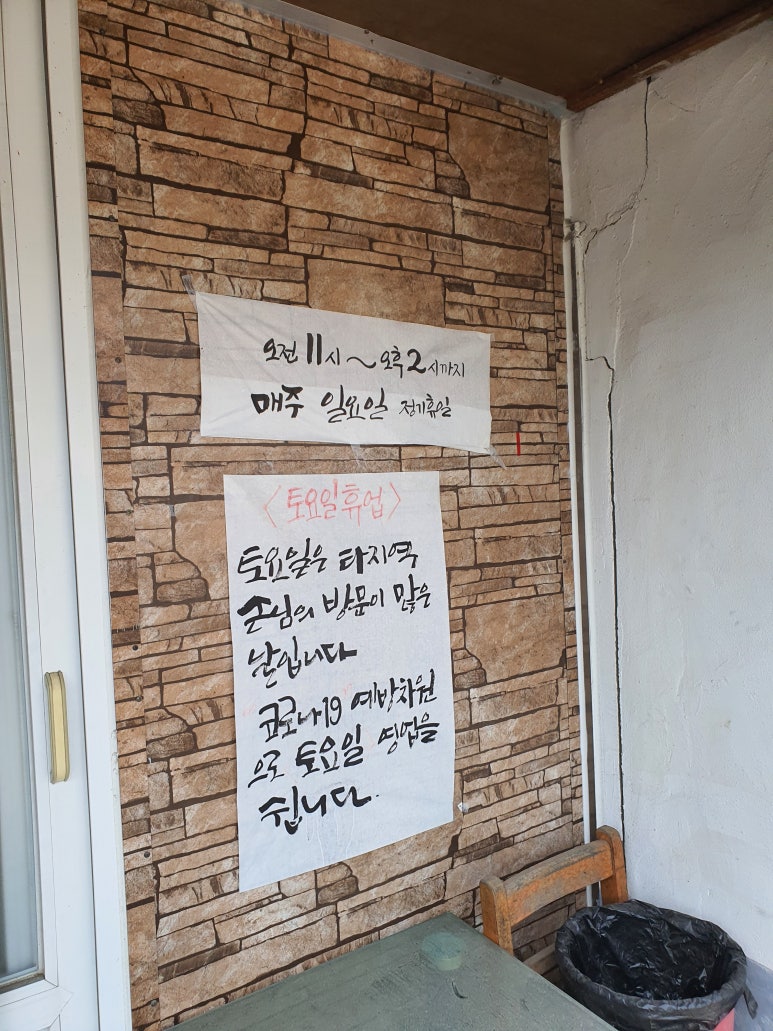 오전 11시 ~ 오후 2시까지
매주 일요일 정기휴일
<토요일휴업>
토요일은 타지역
손님의 방문이 많은
날입니다
코로나19 예방차원
으로 토요일 영업을
쉽니다.